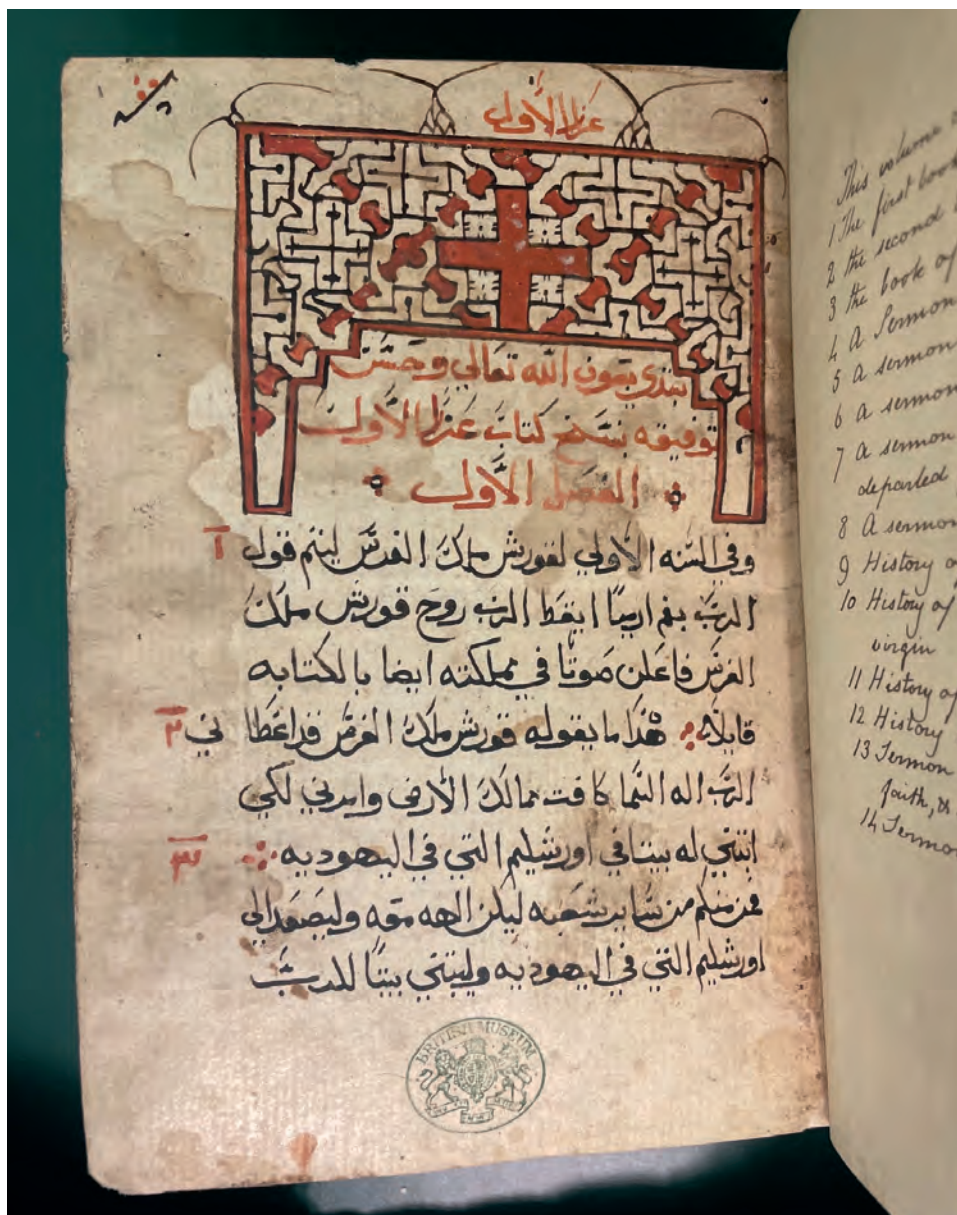 عزرا الأول
نبتدي بعون الله تعالي وحسن
توفيقه بنسخ كتاب عزرا الأول
الفصل الأول
وفي السنه الأولي لقورش ملك الفرس ليتم قول
الرب بفم ارميا ايقظ الرب روح قورش ملك
الفرس فاعلن صوتا في مملكته ايضا بالكتابه
قايلا هذا ما يقوله قورش ملك الفرس قد اعطا ني
الرب اله السما كافت ممالك الأرض وامرني لكي
ابتني له بيتا في اورشليم التي في اليهوديه
فمن منكم من ساير شعبه ليكن الهه معه وليصعد الي
اورشليم التي في اليهوديه وليبتني بيتا للرب
BRITISH MUSEUM
This volume
1 The first book
2 the second
3 the book of
4 A Sermon
5 A sermon
6 a sermon
7 A sermon
departed
8 A sermon
9 History
10 History of
virgin
11 History of
12 History
13 Sermon
faith, &
14 Sermon